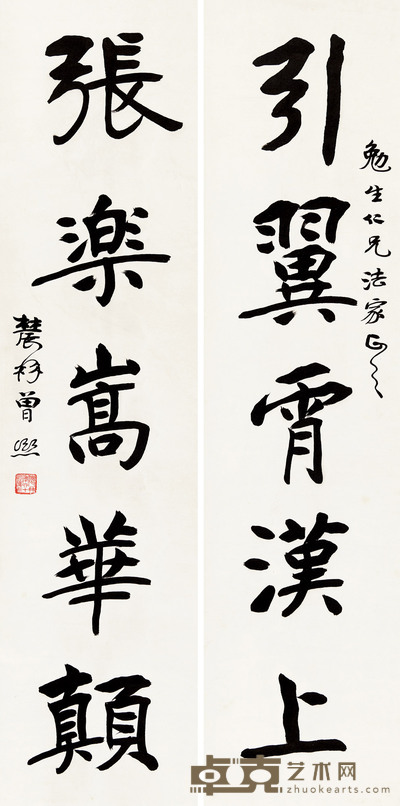 引翼霄漢上
勉生仁兄法家正之
張樂嵩華顛
農髯曾熙
卓克艺术网
zhuokearts.com